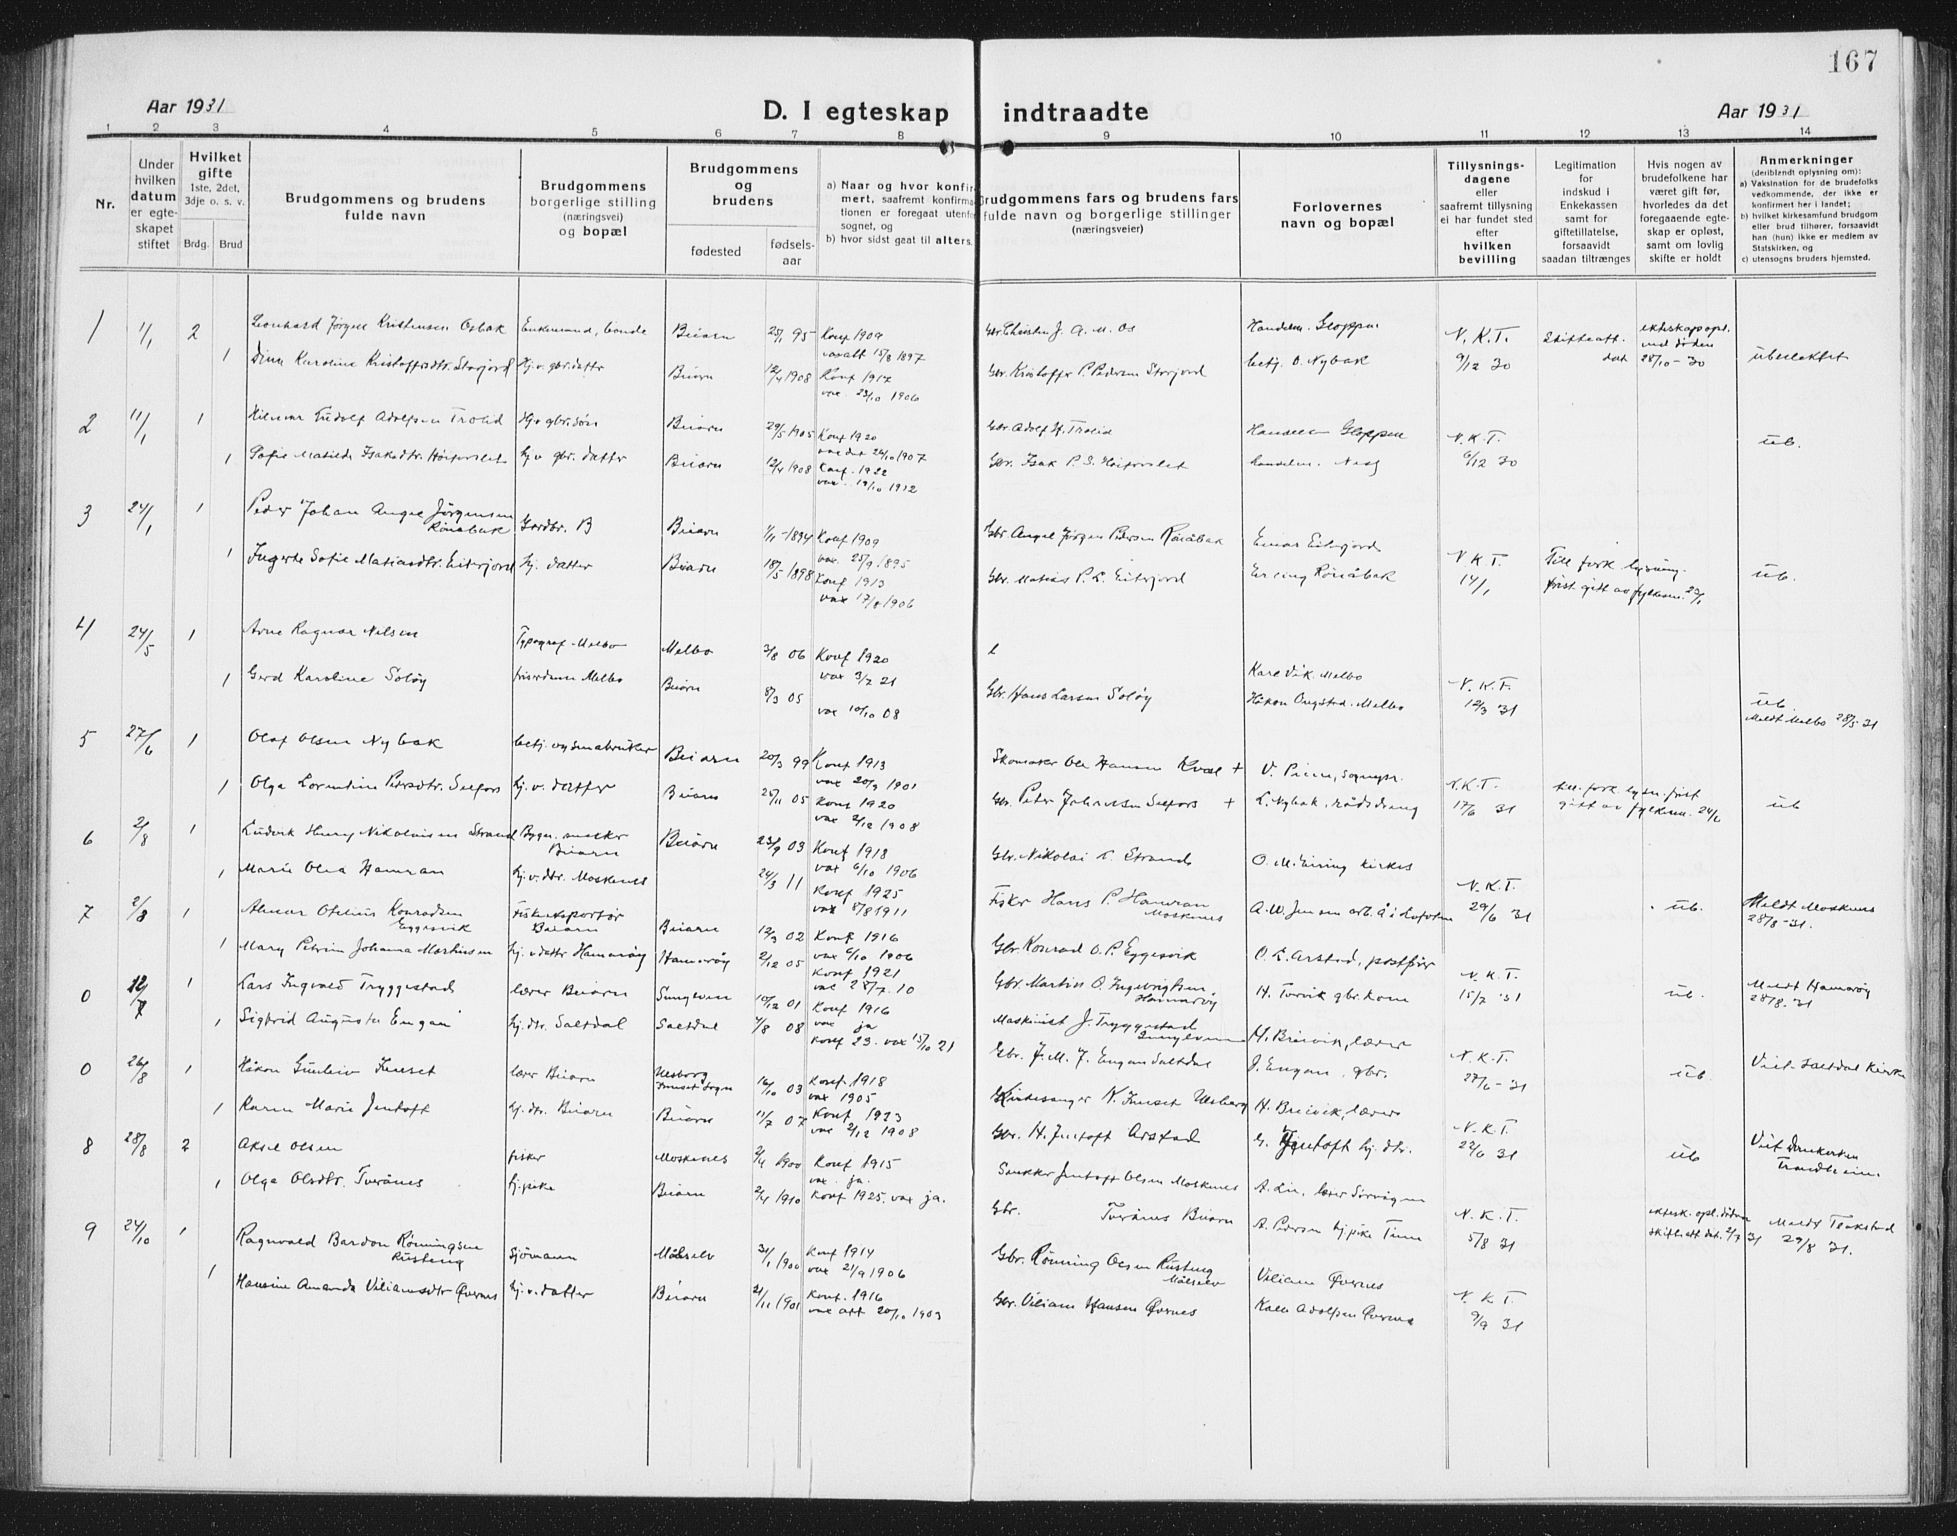 167
Aar 1931
D. I egteskap indtraadte
Aar 1931
1 2 3 4 5 6 7 8 9 10 11 12 13 14
Nr.
Under hvilken datum er egteskapet stiftet
Hvilket gifte 1ste, 2det, 3dje o. s. v.
Brdg. Brud
Brudgommens og brudens fulde navn
Brudgommens borgerlige stilling (næringsvei) og bopæl
Brudgommens og brudens
fødested
fødselsaar
a) Naar og hvor konfirmert, saafremt konfirmationen er foregaat utenfor sognet, og
b) hvor sidst gaat til alters.
Brudgommens fars og brudens fars fulde navn og borgerlige stillinger (næringsveier)
Forlovernes navn og bopæl
Tillysningsdagene eller saafremt tillysning ei har fundet sted efter hvilken bevilling
Legitimation for indskud i Enkekassen samt for giftetillatelse, forsaavidt saadan tiltrænges
Hvis nogen av brudefolkene har været gift før, hvorledes da det foregaaende egteskap er opløst, samt om lovlig skifte er holdt
Anmerkninger (deriblendt oplysning om):
a) Vaksination for de brudefolks vedkommende, der ikke er konfirmert her i landet;
b) hvilket kirkesamfund brudgom eller brud tilhører, forsaavidt han (hun) ikke er medlem av Statskirken, og
c) utensogns bruders hjemsted.
1 1/1 2 Leonhard Jørgen Kristensen Osbak Enkemand, bonde Beiarn 25/1 95 Konf 1909 Gbr. Christen J. A. M. Os Handelsm. Gloppen N. K. T. Skifteatt. ekteskap opl. ved døden
vacalt 15/8 1897
1 Dina Karoline Kristoffersdtr. Storjord Hj. v. gbr. datter Beiarn 12/4 1908 Konf 1917 Gbr. Kristoffer P. Pedersen Storjord betj. O. Nybak 9/12 30 dat 28/10 - 30 ubeslektet
vac. 23/10 1906
2 11/1 1 Hilmar Rudolf Adolfsen Trolid Hj. v gbr. søn Beiarn 29/5 1905 Konf 1920 Gbr. Adolf H. Trolid Handelsm Gloppen N. K. T. ub.
24/10 1907
1 Sofie Matilde Isaksdtr. Høiforslet hj. v gbr. datter Beiarn 12/4 1908 Konf. 1922 Gbr. Isak P. S. Høiforslet handelsm. Næss 6/12 30
vac. 19/10 1912
3 24/1 1 Peder Johan Angel Jørgensen Rønåbak Gardbr. B Beiarn 1/11 - 1894 Konf 1909 Gbr. Angel Jørgen Pedersen Rønåbak Einar Eiterjord N. K. T. Till fork lysning.
vax. 25/9 1895
1 Ingerte Sofie Matiasdtr. Eiterjord hj. datter Beiarn 18/5 1898 Konf 1913 Gbr. Matias P. L. Eiterjord Erling Rønåbak 14/1 frist gitt av fylkesm. 22/1 ub.
vax 17/8 1906
4 24/5 1 Arne Ragnar Nilsen Typograf Melbo Melbo 3/8 06 Konf 1920 Kare Vik. Melbo N. K. T.
vax 3/7 21
1 Gerd Karoline Soløy frisørdame Melbo Beiarn 8/3 05 Gbr. Hans Larsen Soløy Håkon Ongstad. Melbo 12/3 31 ub.
vax 10/10 08 Meldt Melbo 28/5 31
5 27/6 1 Olaf Olsen Nybak betj. og småbruker Beiarn 20/3 99 Konf 1913 Skomaker Ole Hansen Kval + V. Piene, sognepr. N. K. T. till. fork lysn. frist
vax 20/9 1901
1 Olga Lorentine Pedersdtr. Selfors hj. v. datter Beiarn 25/11 05 Konf 1920 Gbr. Peder Johansen Selfors + L. Nybak, rådsdreng 17/6 31 gitt av fylkesm. 24/6 ub
vax 2/12 1908
6 2/8 1 Ludvik Henry Nikolaisen Strand Bygn. snekker Beiarn Beiarn 23/9 03 Konf 1918 Gbr. Nikolai L. Strand O. M. Eining kirkes N. K. T.
vax 6/10 1906
1 Marie Olea Hamran hj. v. dtr. Moskenes 24/3 11 Konf 1925 Fisker Hans P. Hamran Moskenes A. W. Jensen arb. Å i Lofoten 29/6 31 ub. Meldt Moskenes 28/8-31.
vax 8/8 1911
7 2/8 1 Almar Ofelius Konradsen Eggesvik Fiskeeksportør Beiarn Beiarn 12/3 02 Konf 1916 Gbr. Konrad O. P. Eggesvik O. L. Arstad, postfører N. K. T.
vax 6/10 1906
1 Mary Petrine Johanna Martinsen hj. v datter Hamarøy Hamarøy 2/12 05 Konf 1921 Gbr. Martin O. Ingebrigtsen Hamarøy H. Torvik gbr. kone 15/7 31 ub. Meldt Hamarøy 28/8 31
vac 28/7. 10
0 12/7 1 Lars Ingvald Tryggestad lærer Beiarn Sunylven 10/12 01 Konf 1916 Maskinist J. Tryggestad Sunylven H. Breivik, lærer N. K. T.
vax ja
1 Sigfrid Augusta Engan hj. dtr. Saltdal Saltdal 4/8 08 konf 23. vax 15/10 21 Gbr. J. M. J. Engan Saltdal J. Engan, gbr. 27/6 - 31 ub Viet Saltdal kirke
0 26/8 1 Håkon Gunleiv Innset lærer Beiarn Ulsberg Innset sogn 16/10 03 Konf. 1918 Kirkesanger N. Innset Ulsberg H. Breivik, lærer N. K. T.
vax 1905
1 Karen Marie Jentoft hj. dtr. Beiarn Beiarn 11/7 07 Konf 1923 Gbr. H. Jentoft Arstad G. Jentoft hj. dtr. 22/6 31 ub Viet Domkirken Trondheim
vac 2/12 1908
8 28/8 2 Aksel Olsen fisker Moskenes 2/4 1900 Konf 1915 Snekker Jentoft Olsen Moskenes A. Lie, lærer Sørvågen N. K. T. ektesk. opl. døden
vax. ja.
1 Olga Olsdtr. Tverånes hj. pike Beiarn 2/4 1910 Konf 1925. vax ja. Gbr. Tverånes Beiarn A. Pedersen hj. pike 5/8 31 skifteatt dat. 2/7 31 Meldt 29/8 31.
9 24/10 1 Ragnvald Bardon Rønningsen Rusteng Sjømann Målselv 31/1 1900 Konf 1914 Gbr. Rønning Olsen Rusteng Målselv Viliam Øvernes N. K. T.
vax 21/9 1906
1 Hansine Amanda Viliamsdtr Øvernes hj. v. datter Beiarn 21/11 1901 Konf. 1916 Gbr. Viliam Hansen Øvernes Kale Adolfsen Øvernes 9/9 31
vax att 20/10 1903